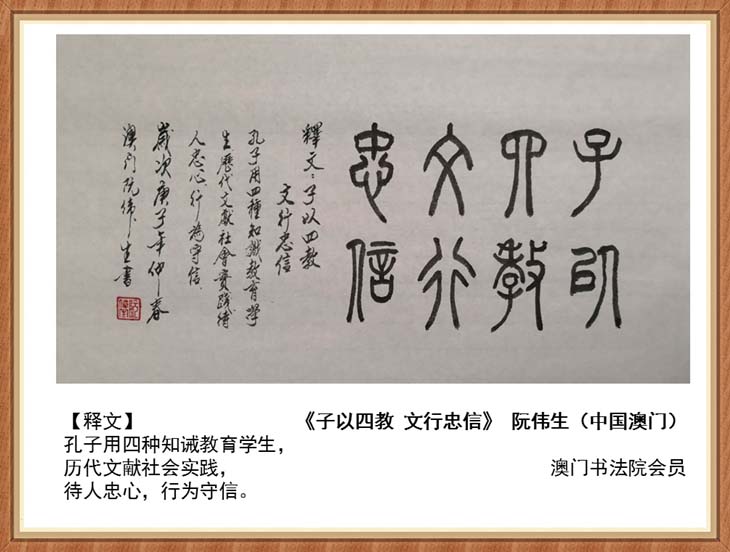 子以
四教
文行
忠信
釋文：子以四教
文行忠信
孔子用四種知識教育學
生歷代文獻社會實踐待
人忠心行為守信
歲次庚子年仲春
澳门阮偉生書
【释文】
孔子用四种知诫教育学生，
历代文献社会实践，
待人忠心，行为守信。
《子以四教 文行忠信》 阮伟生（中国澳门）
澳门书法院会员